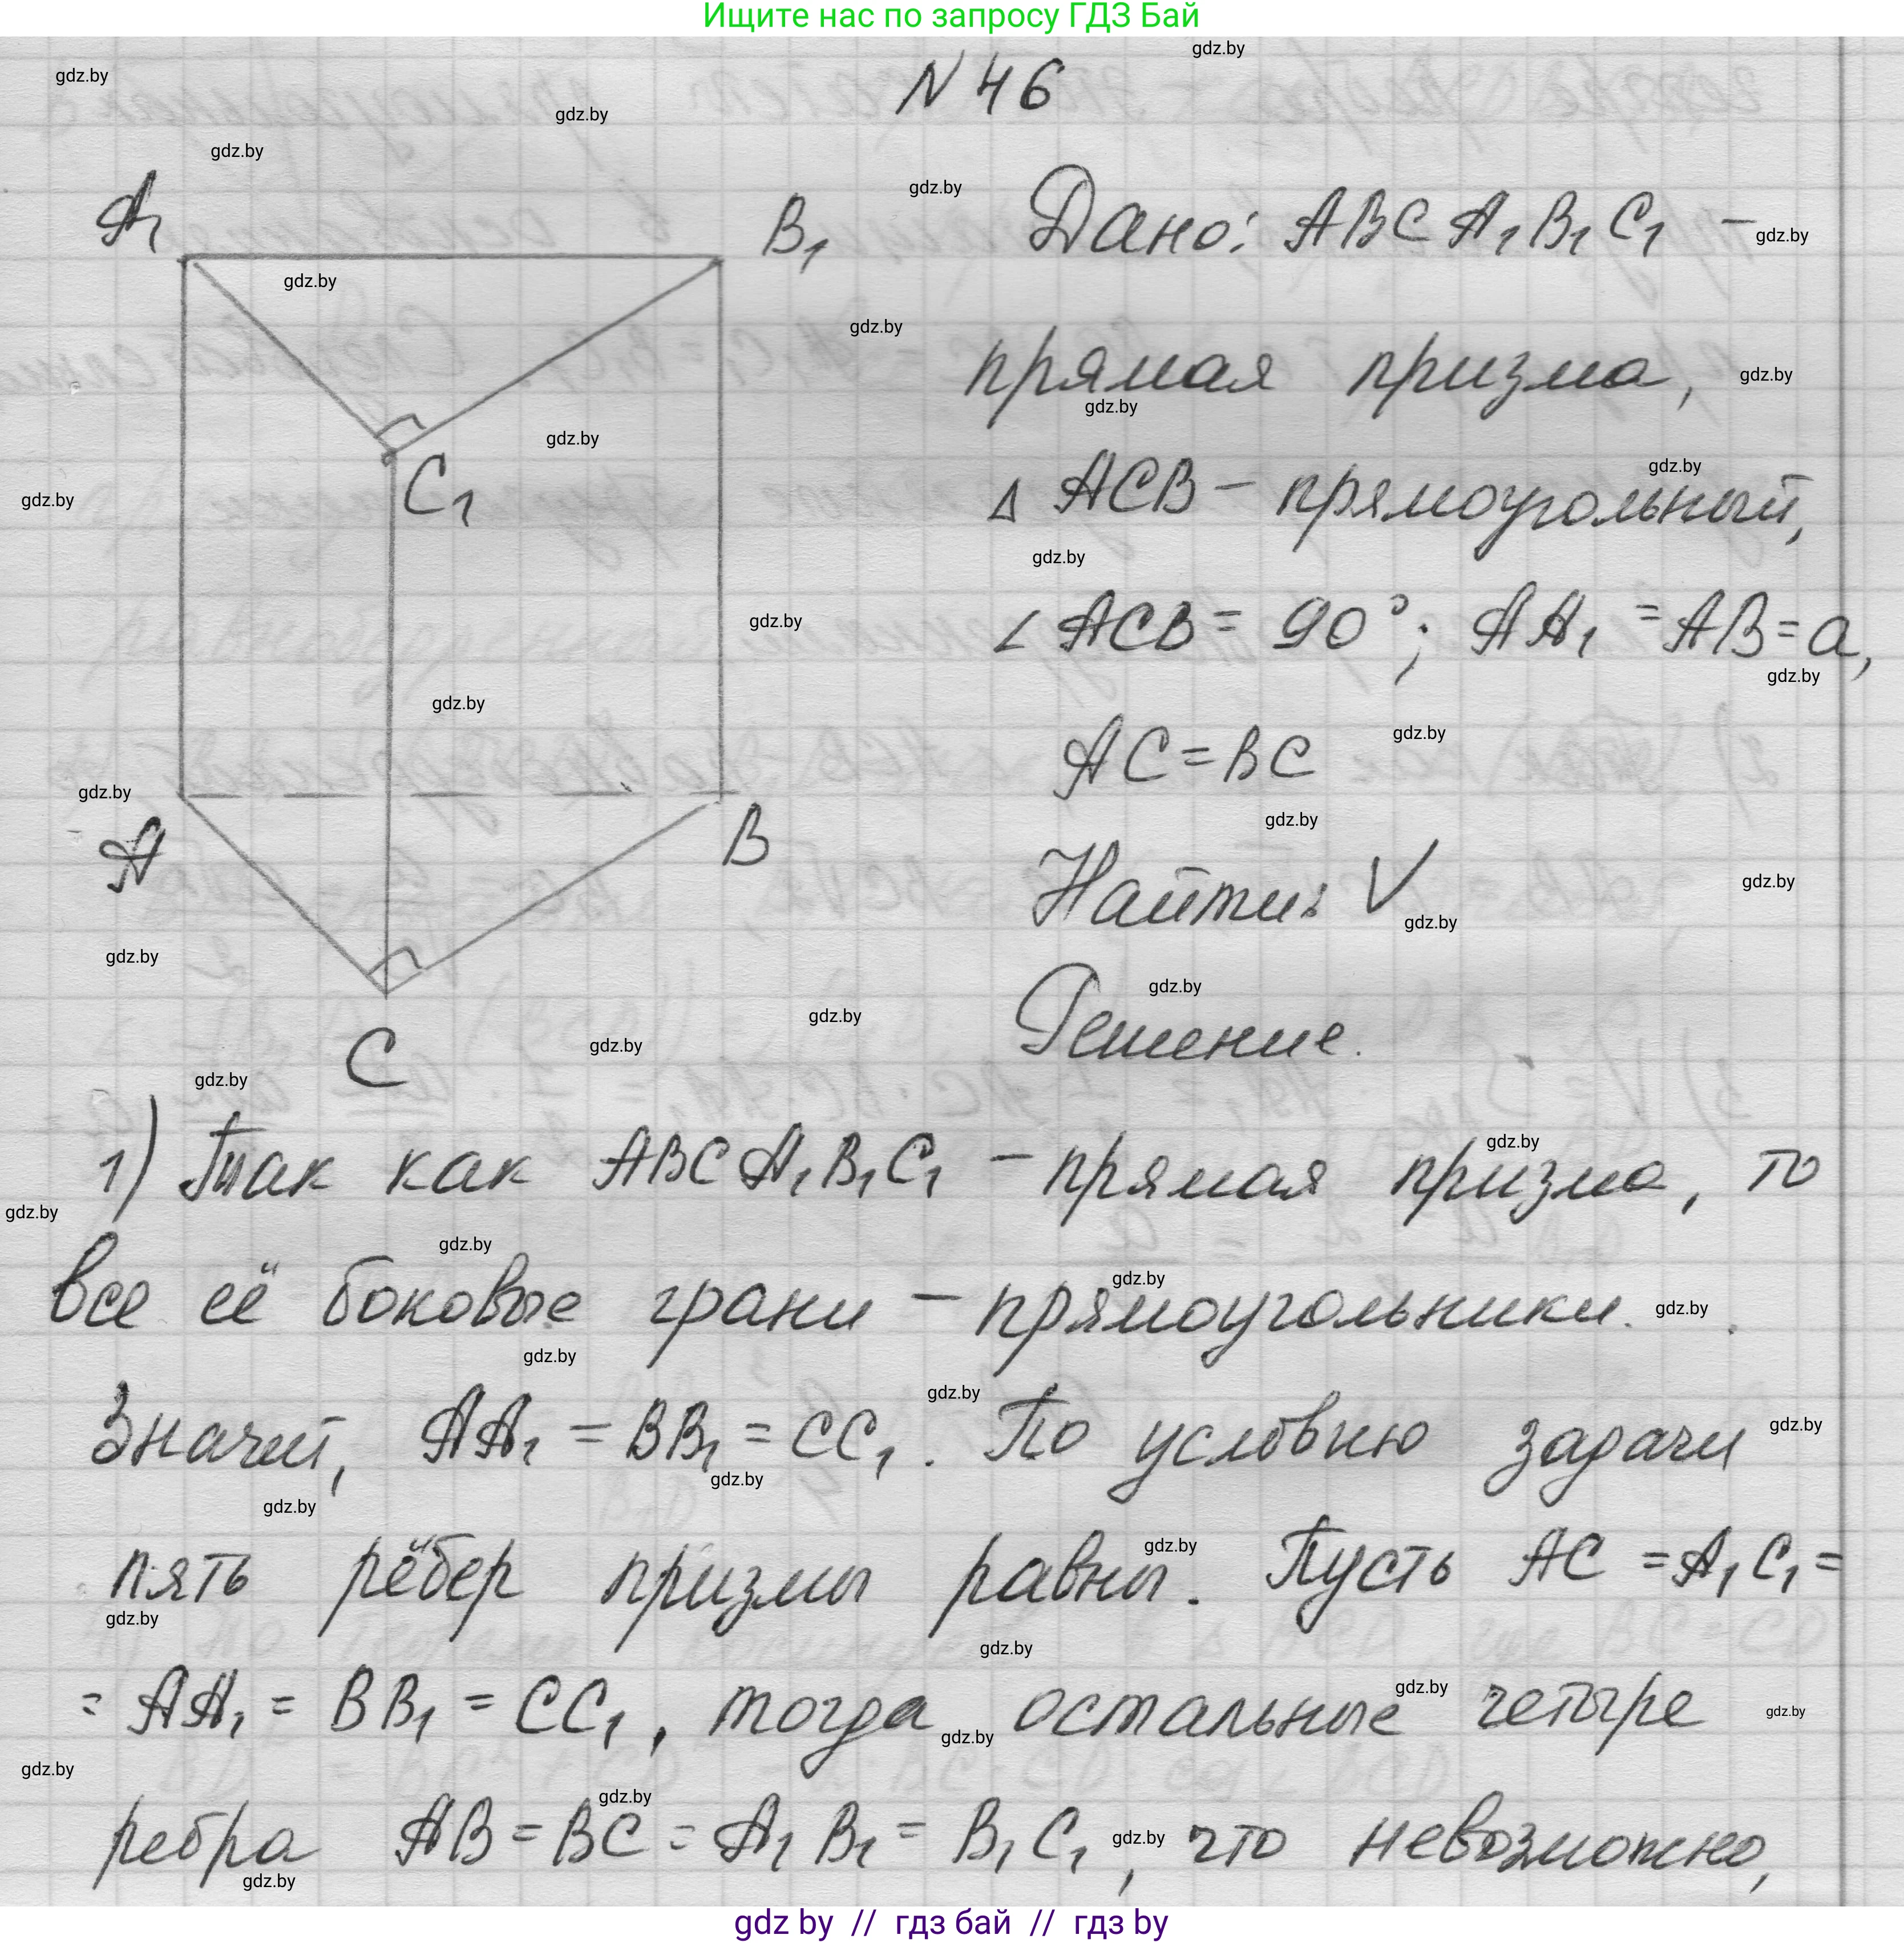 Ищите нас по запросу ГДЗ Бай
N 46
A₁
B₁
C₁
A
B
C
Дано: ABCA₁B₁C₁ –
прямая призма,
Δ ACB – прямоугольный,
∠ ACB = 90°; AA₁ = AB = a,
AC = BC
Найти: V
Решение.
1) Так как ABCA₁B₁C₁ – прямая призма, то
все её боковые грани – прямоугольники.
Значит, AA₁ = BB₁ = CC₁. По условию задачи
пять рёбер призмы равны. Пусть AC = A₁C₁ =
= AA₁ = BB₁ = CC₁, тогда остальные четыре
ребра AB = BC = A₁B₁ = B₁C₁, что невозможно,
gdz by // гдз бай // гдз by